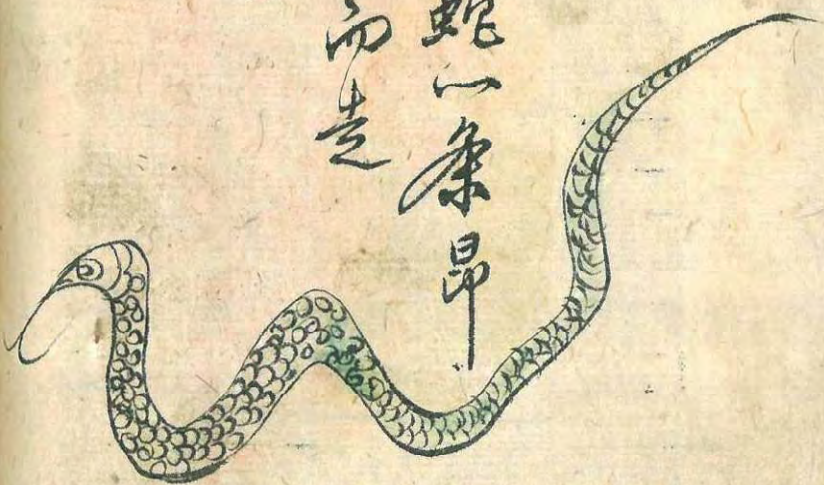 蛇一条昂
而走